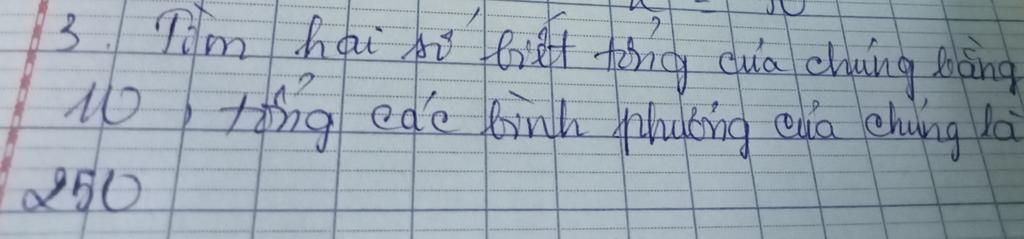 3. Tìm hai số biết tổng của chúng bằng
10, tổng các bình phương của chúng là
250